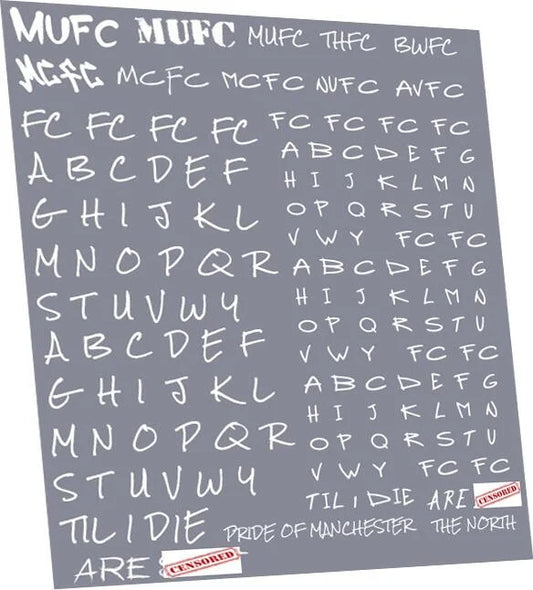 MUFC MUFC MUFC THFC BWFC
MCFC MCFC MCFC NUFC AVFC
FC FC FC FC FC FC FC FC
A B C D E F
G H I J K L
M N O P Q R
S T U V W Y
A B C D E F
G H I J K L
M N O P Q R
S T U V W Y
TIL I DIE
ARE CENSORED
A B C D E F G
H I J K L M N
O P Q R S T U
V W Y FC FC
A B C D E F G
H I J K L M N
O P Q R S T U
V W Y FC FC
A B C D E F G
H I J K L M N
O P Q R S T U
V W Y FC FC
TIL I DIE ARE CENSORED
PRIDE OF MANCHESTER THE NORTH